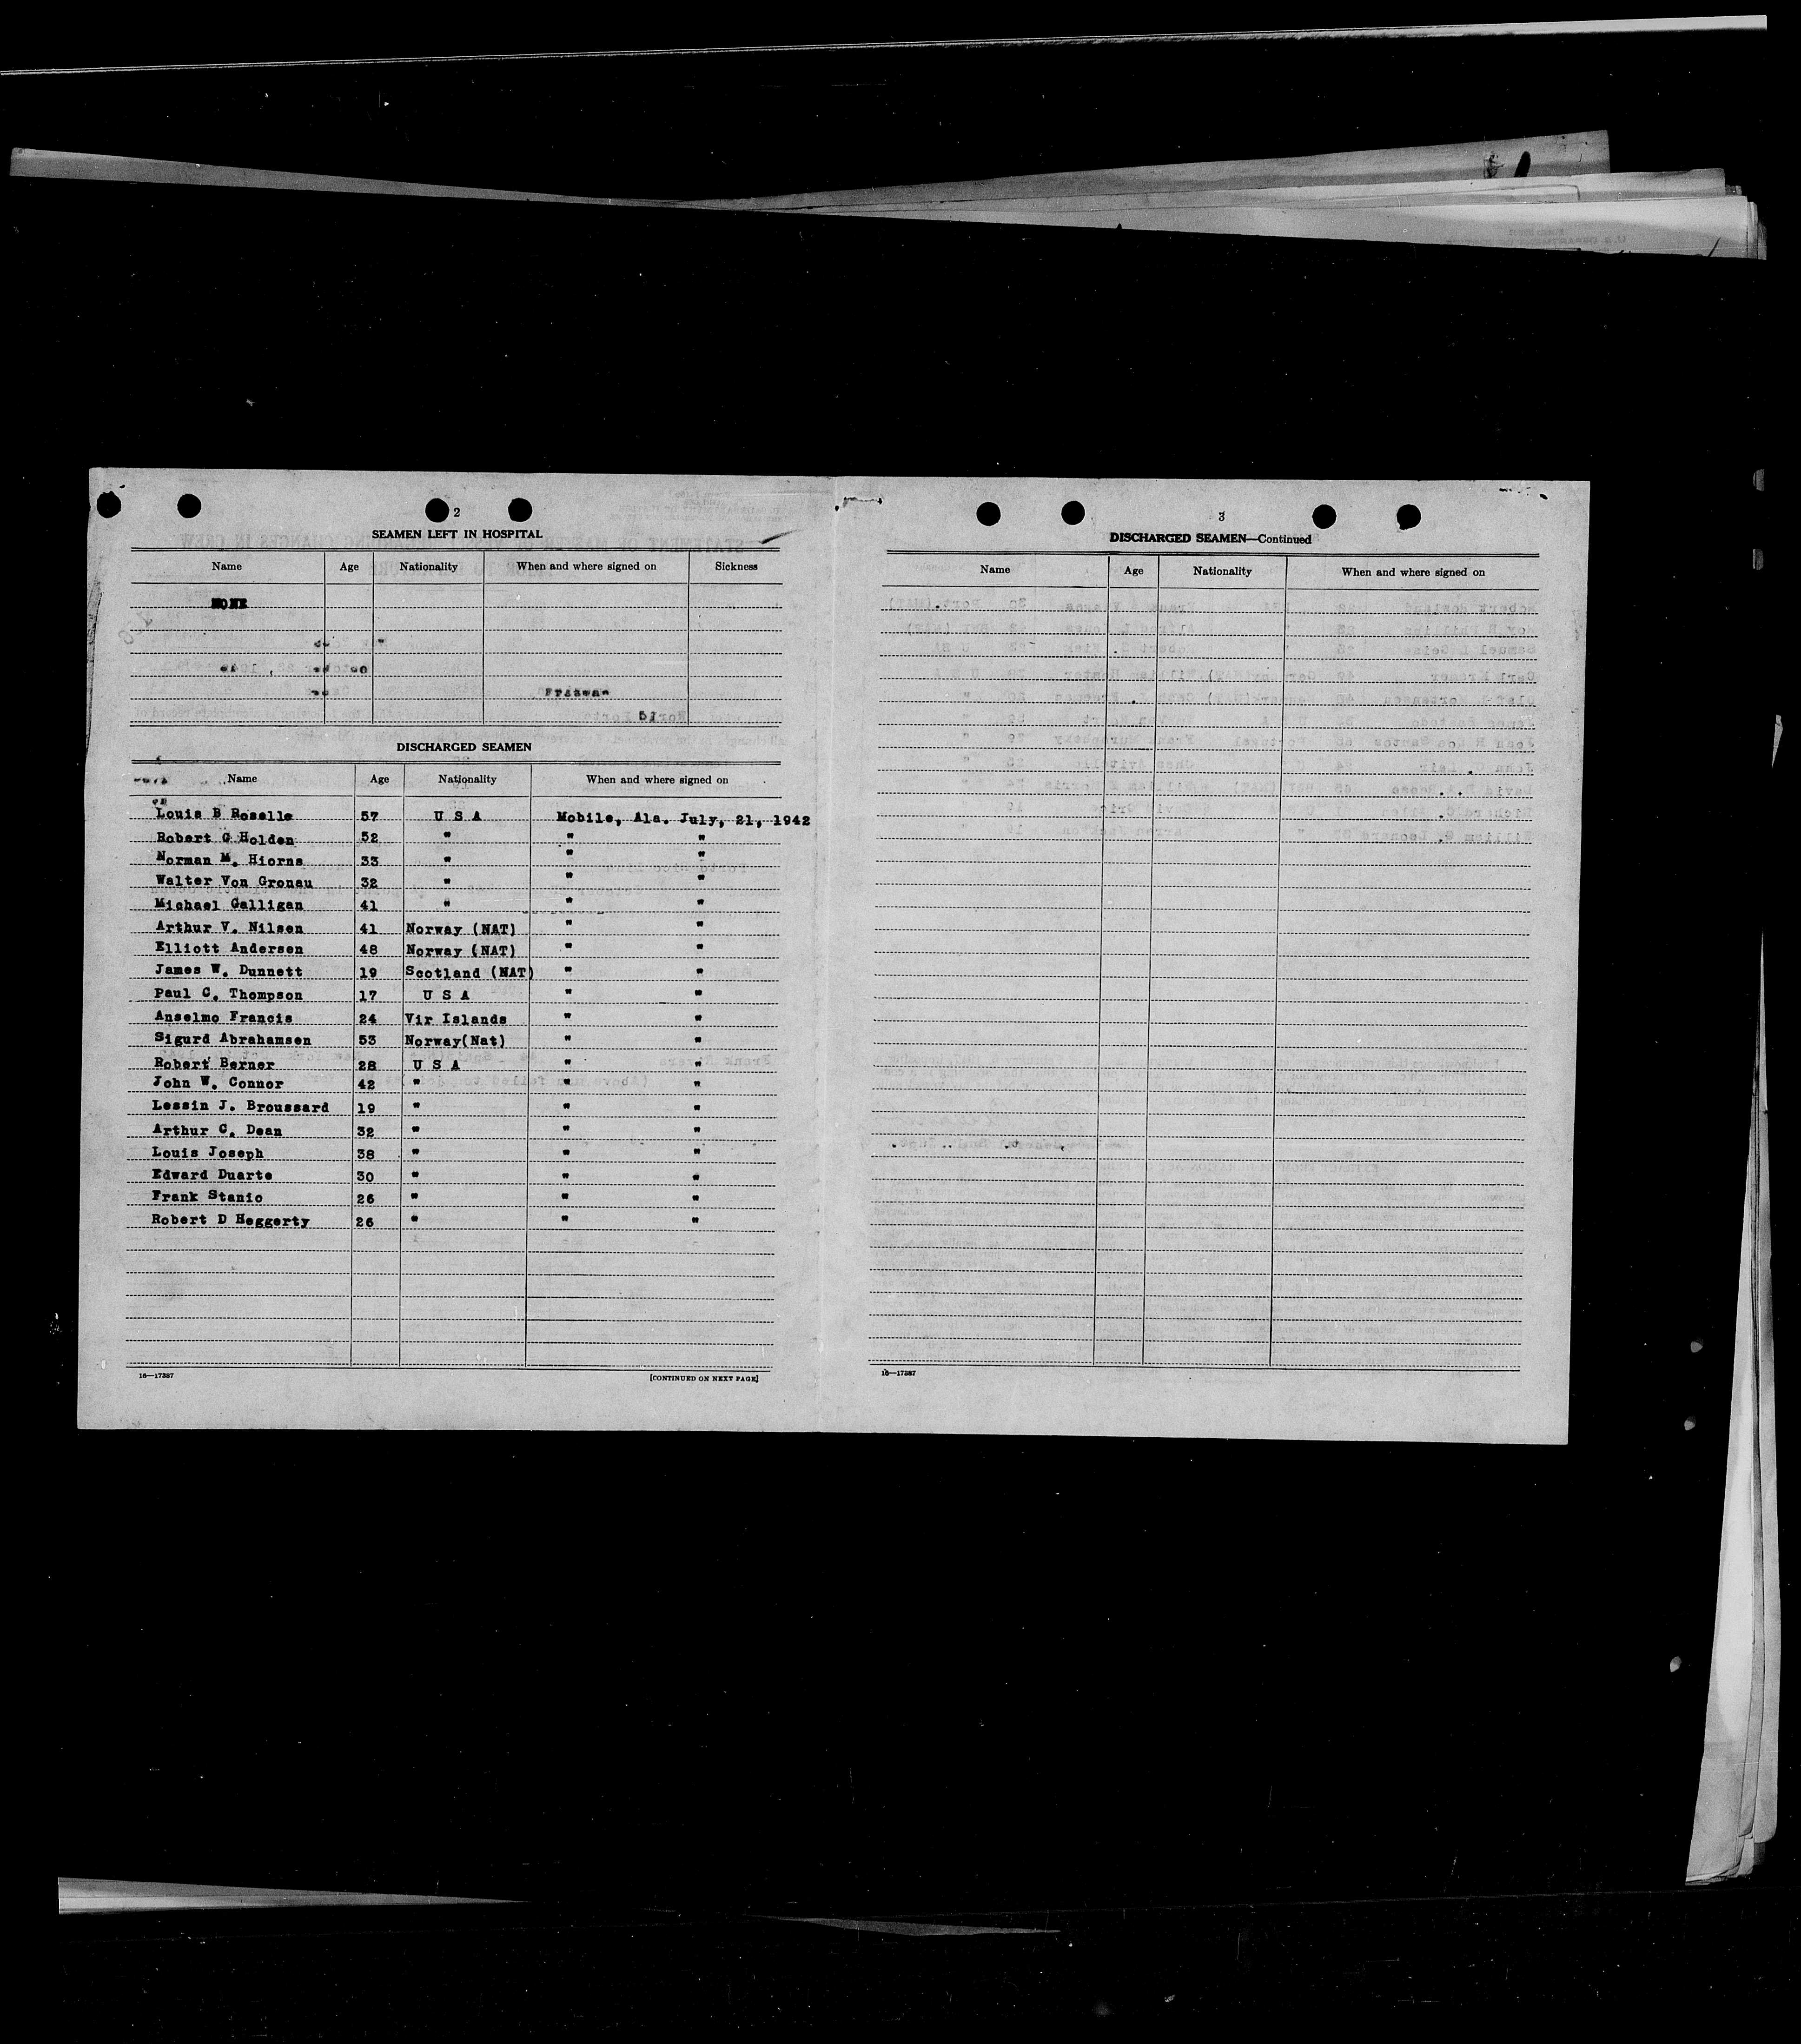 2
SEAMEN LEFT IN HOSPITAL
Name Age Nationality When and where signed on Sickness
NONE
DISCHARGED SEAMEN
Name Age Nationality When and where signed on
Louis B Roselle 57 U S A Mobile, Ala. July, 21, 1942
Robert G Holden 52 " " "
Norman M. Hiorns 33 " " "
Walter Von Gronau 32 " " "
Michael Galligan 41 " " "
Arthur V. Nilsen 41 Norway (NAT) " "
Elliott Andersen 48 Norway (NAT) " "
James W. Dunnett 19 Scotland (NAT) " "
Paul C. Thompson 17 U S A " "
Anselmo Francis 24 Vir Islands " "
Sigurd Abrahamsen 53 Norway(Nat) " "
Robert Berner 28 U S A " "
John W. Connor 42 " " "
Lessin J. Broussard 19 " " "
Arthur C. Dean 32 " " "
Louis Joseph 38 " " "
Edward Duarte 30 " " "
Frank Stanio 26 " " "
Robert D Heggerty 26 " " "
16—17387 [CONTINUED ON NEXT PAGE]
3
DISCHARGED SEAMEN—Continued
Name Age Nationality When and where signed on
16—17387